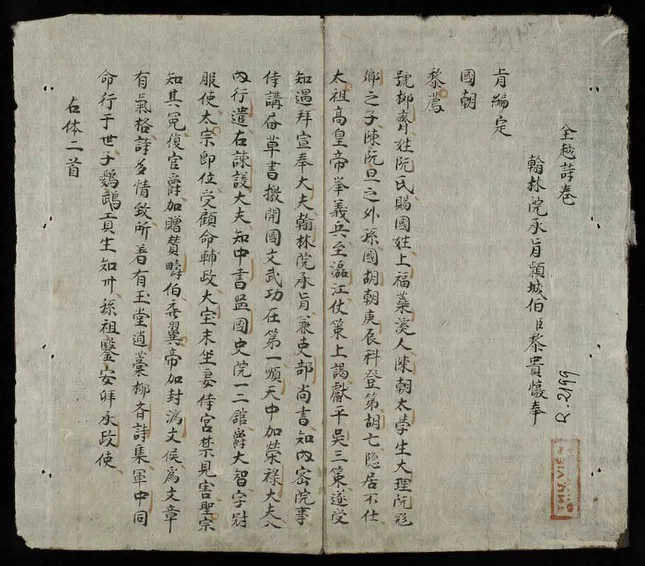 全越詩卷
翰林院承旨頴城伯臣黎貴惇奉
旨編定
國朝
黎廌
號抑齋姓阮氏賜國姓上福蘂溪人陳朝太學生大理阮飛
卿之子陳阮旦之外孫國胡朝庚辰科登第胡亡隐居不仕
太祖高皇帝挙義兵至㵢江仗策上謁獻平吳三策遂受
知遇拜宣奉大夫翰林院承旨兼吏部尚書知內密院事
侍講奋草書撥開國文武功在第一順天中加榮祿大夫入
內行遣右諫議大夫知中書监國史院一二舘爵大智字尉
服使太宗即位受顧命輔政大宝末坐妻侍宮禁見害聖宗
知其冤復官爵加贈賛疇伯奋翼帝加封濟文侯爲文章
有氣格詩多情致所着有玉堂逍蓂抑斉詩集軍中同
命行于世子鸚鵡貢生知州孫祖鑒安拜承政使
右体二首
R.2199